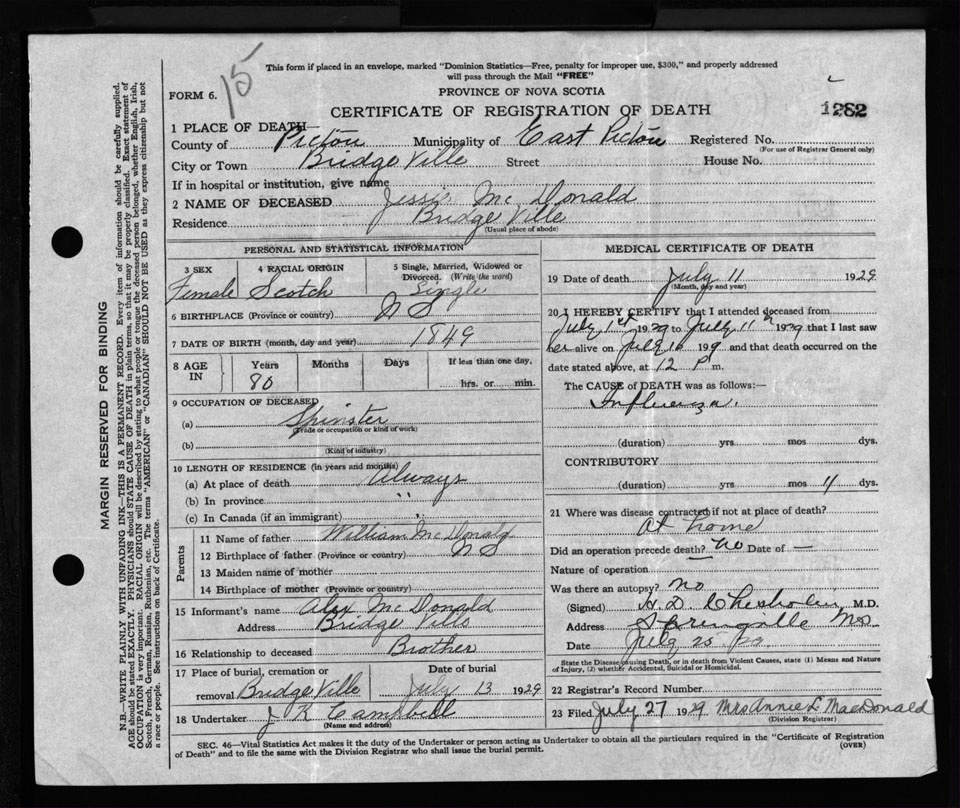 This form if placed in an envelope, marked "Dominion Statistics—Free, penalty for improper use, $300," and properly addressed
will pass through the Mail "FREE"
15
FORM 6.
PROVINCE OF NOVA SCOTIA
CERTIFICATE OF REGISTRATION OF DEATH
1282
1 PLACE OF DEATH
County of Pictou Municipality of East Pictou Registered No.
(For use of Registrar General only)
City or Town Bridge Ville Street House No.
If in hospital or institution, give name
2 NAME OF DECEASED Jessie McDonald
Residence Bridge Ville
(Usual place of abode)
PERSONAL AND STATISTICAL INFORMATION
3 SEX 4 RACIAL ORIGIN 5 Single, Married, Widowed or
Divorced. (Write the word)
Female Scotch Single
6 BIRTHPLACE (Province or country) N S
7 DATE OF BIRTH (month, day and year) 1849
8 AGE IN Years Months Days If less than one day,
80 hrs. or min.
9 OCCUPATION OF DECEASED
(a) Spinster
(Trade or occupation or kind of work)
(b)
(Kind of industry)
10 LENGTH OF RESIDENCE (in years and months)
(a) At place of death Always
(b) In province "
(c) In Canada (if an immigrant) "
Parents
11 Name of father William McDonald
12 Birthplace of father (Province or country) N S
13 Maiden name of mother
14 Birthplace of mother (Province or Country)
15 Informant's name Alex McDonald
Address Bridge Ville
16 Relationship to deceased Brother
17 Place of burial, cremation or Date of burial
removal Bridge Ville July 13 1929
18 Undertaker J K Campbell
(Name and address)
MEDICAL CERTIFICATE OF DEATH
19 Date of death July 11 1929
(Month, day and year)
20 I HEREBY CERTIFY that I attended deceased from
July 1st 1929 to July 11th 1929 that I last saw
her alive on July 10 199 and that death occurred on
date stated above, at 12 p m.
The CAUSE of DEATH was as follows:—
Influenza.
(duration) yrs mos dys.
CONTRIBUTORY
(duration) yrs mos 11 dys.
21 Where was disease contracted if not at place of death?
At home
Did an operation precede death? No Date of —
Nature of operation
Was there an autopsy? No
(Signed) H. D. Chisholm, M.D.
Address Springville
Date July 25/29
State the Disease causing Death, or in death from Violent Causes, state (1) Means and Nature
of Injury, (2) whether Accidental, Suicidal or Homicidal.
22 Registrar's Record Number
23 Filed July 27 1929 Mrs Annie L MacDonald
(Division Registrar)
SEC. 46—Vital Statistics Act makes it the duty of the Undertaker or person acting as Undertaker to obtain all the particulars required in the "Certificate of Registration
of Death" and to file the same with the Division Registrar who shall issue the burial permit. (OVER)
MARGIN RESERVED FOR BINDING
N.B.—WRITE PLAINLY WITH UNFADING INK—THIS IS A PERMANENT RECORD. Every item of information should be carefully supplied.
AGE should be stated EXACTLY. PHYSICIANS should STATE CAUSE OF DEATH in plain terms, so that it may be properly classified. Exact statement of
OCCUPATION is very important. RACIAL ORIGIN will be described by stating to what people or tongue the deceased person belonged, whether English, Irish,
Scotch, French, German, Russian, Ruthenian, etc. The terms "AMERICAN" or "CANADIAN" SHOULD NOT BE USED as they express citizenship but not
a race or people. See instructions on back of Certificate.